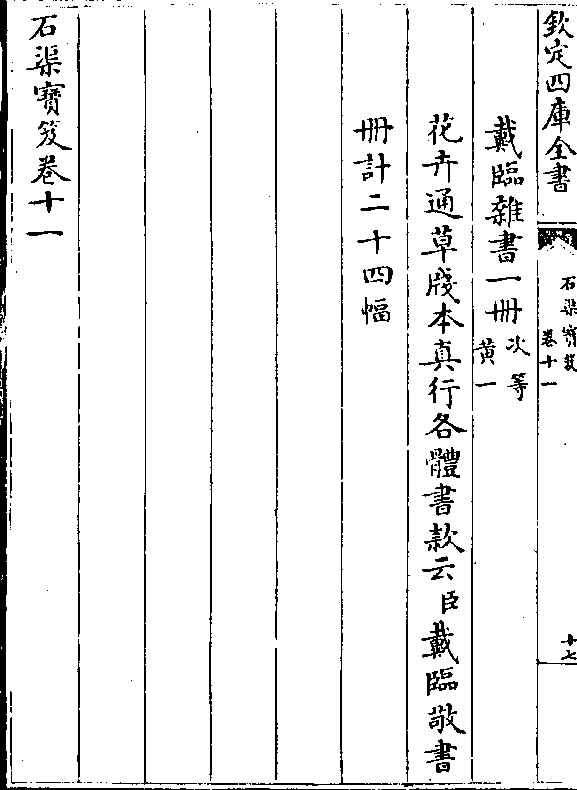 欽定四庫全書
石渠寶笈
卷十一
十七
戴臨雜書一冊次等
黄一
花卉通草牋本真行各體書款云臣戴臨敬書
冊計二十四幅
石渠寶笈卷十一